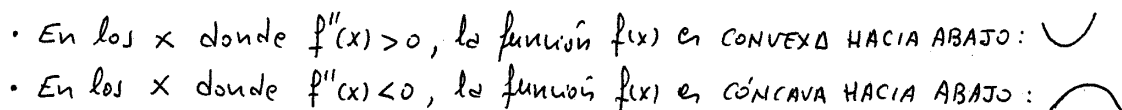 • En los x donde f''(x) > 0, la función f(x) es CONVEXA HACIA ABAJO:
• En los x donde f''(x) < 0, la función f(x) es CÓNCAVA HACIA ABAJO: